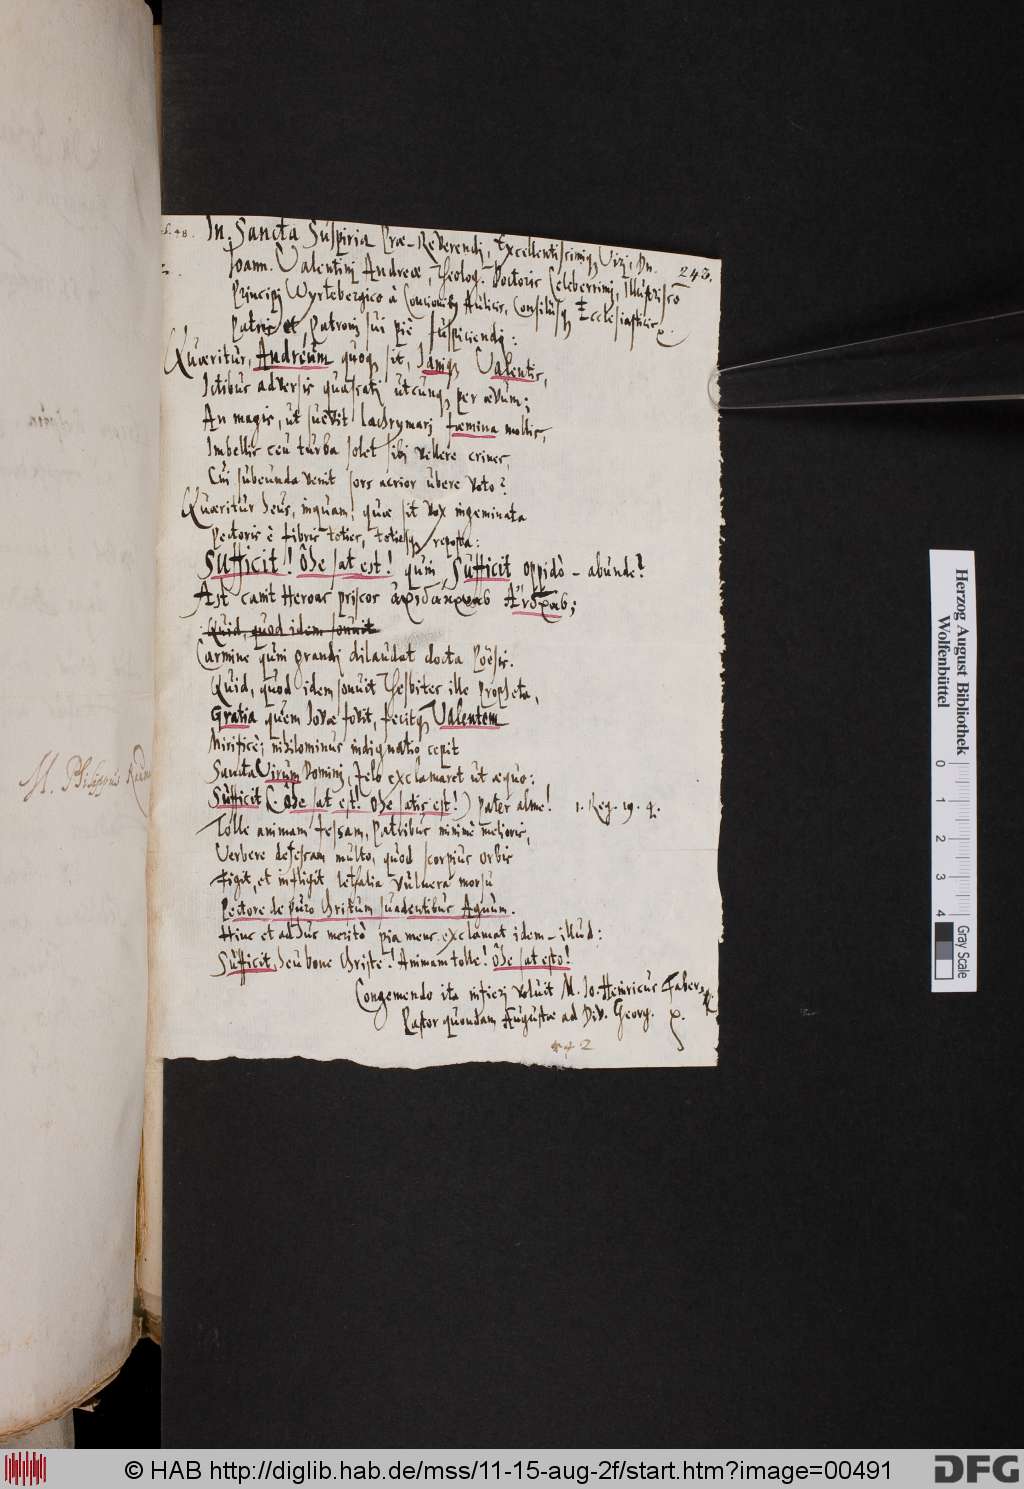 In Sancta Suspiria Præ-Reverendj, Excellentissimiq Virj, Dn.
243.
Joann. Valentinj Andreæ, Theolog. Doctoris Celeberrimj, Illustrissō
Principj Wyrtebergico à Concionibq Aulicis, Consilijsq Ecclesiasticis
Patris et Patronj sui piè suspiciendj:
Quæritur, Andreum quoq sit, Janiq Valentis,
Ictibus adversis quassatj utcunq per ævum;
An magis, ut suevit lachrymarj fæmina mollis,
Imbellis ceu turba solet sibj vellere crines,
Cui subeunda venit sors acrior ubere voto?
Quæritur heus, inquam, quæ sit vox ingeminata
Pectoris è fibris toties, totiesq reposta:
Sufficit! Ohe sat est! quin Sufficit oppidò - abunde?
Ast canit Heroas priscos ἀριδακρυας Ἄνδρας;
Quid, quod idem sonuit
Carmine quin grandj dilaudat docta Poësis.
Quid, quod idem sonuit Thesbites ille Propheta,
Gratia quem Jovæ fovit, fecitq Valentem
Mirificè; nihilominus indignatio cepit
Sancta Virum Dominj, Zelo exclamaret ut æquo:
Sufficit (Ohe sat est! Ohe satis est!) pater alme! 1. Reg. 19. 4.
Tolle animam fessam, Patribus minimè melioris,
Verbere defessam multo, quod scorpius orbis
Figit, et infligit lethalia vulnera morsu
Pectore de puro Christum suadentibus Agnum.
Hinc et adhuc meritò pia mens exclamat idem - illud:
Sufficit, heu bone Christe! Animam tolle! ohe sat esto!
Congemendo ita inficij voluit M. Jo. Heinricus Faber,
Pastor quondam Augustæ ad Div. Georg.
442
M. Philippus
Herzog August Bibliothek
Wolfenbüttel
0 1 2 3 4
Gray Scale
© HAB http://diglib.hab.de/mss/11-15-aug-2f/start.htm?image=00491
DFG